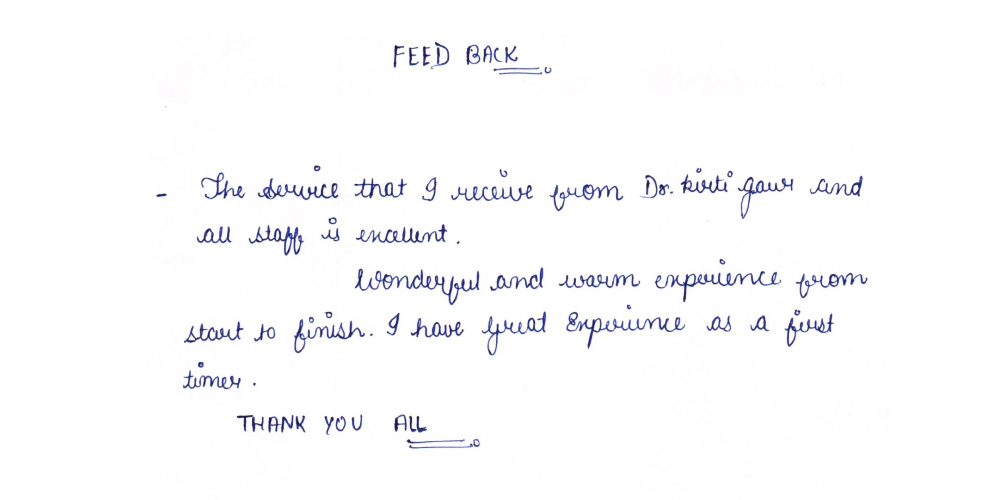 FEED BACK
- The service that I receive from Dr. kirti gaur and
all staff is excellent.
Wonderful and warm experience from
start to finish. I have great Experience as a first
timer.
THANK YOU ALL